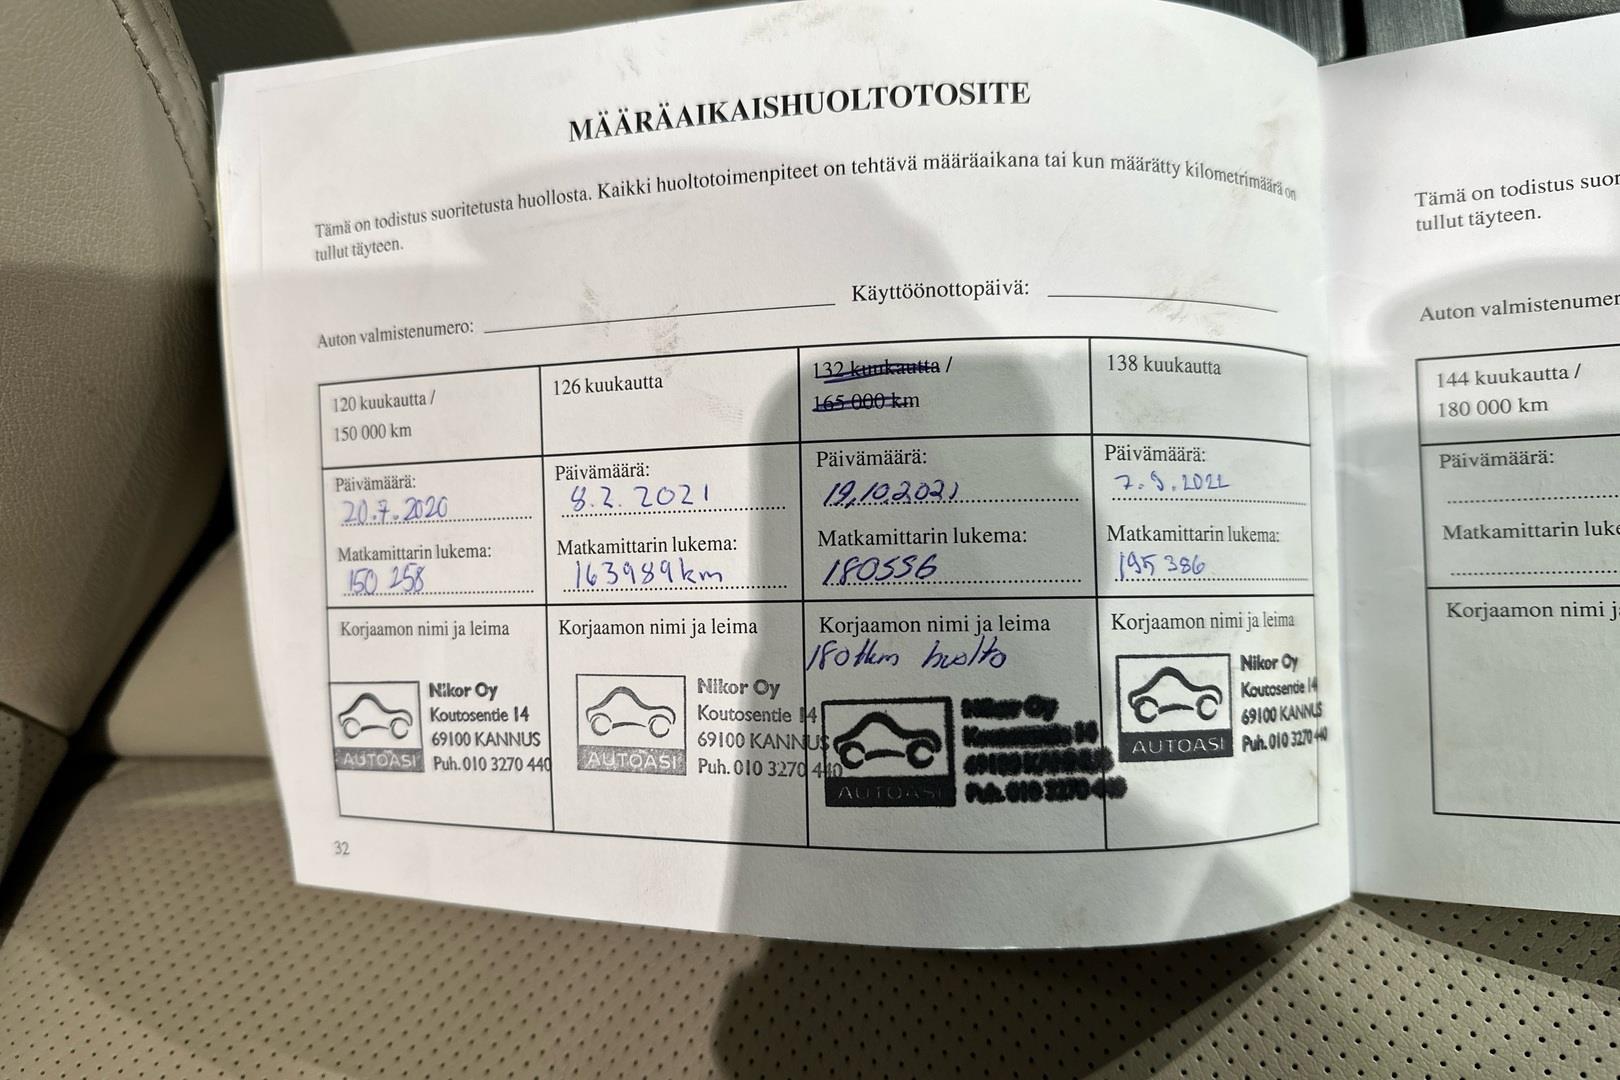 MÄÄRÄAIKAISHUOLTOTOSITE
Tämä on todistus suoritetusta huollosta. Kaikki huoltotoimenpiteet on tehtävä määräaikana tai kun määrätty kilometrimäärä on
tullut täyteen.
Auton valmistenumero:
Käyttöönottopäivä:
120 kuukautta /
150 000 km
Päivämäärä:
20.7.2020
Matkamittarin lukema:
150 258
Korjaamon nimi ja leima
Nikor Oy
Koutosentie 14
69100 KANNUS
Puh. 010 3270 440
AUTOASI
126 kuukautta
Päivämäärä:
8.2.2021
Matkamittarin lukema:
163989 km
Korjaamon nimi ja leima
Nikor Oy
Koutosentie 14
69100 KANNUS
Puh. 010 3270 440
AUTOASI
132 kuukautta /
165 000 km
Päivämäärä:
19.10.2021
Matkamittarin lukema:
180556
Korjaamon nimi ja leima
180tkm huolto
Nikor Oy
Koutosentie 14
69100 KANNUS
Puh. 010 3270 440
AUTOASI
138 kuukautta
Päivämäärä:
7.9.2022
Matkamittarin lukema:
195 386
Korjaamon nimi ja leima
Nikor Oy
Koutosentie 14
69100 KANNUS
Puh. 010 3270 440
AUTOASI
32
Tämä on todistus
tullut täyteen.
Auton
144 kuukautta /
180 000 km
Päivämäärä:
Matkamittarin
Korjaamon nimi